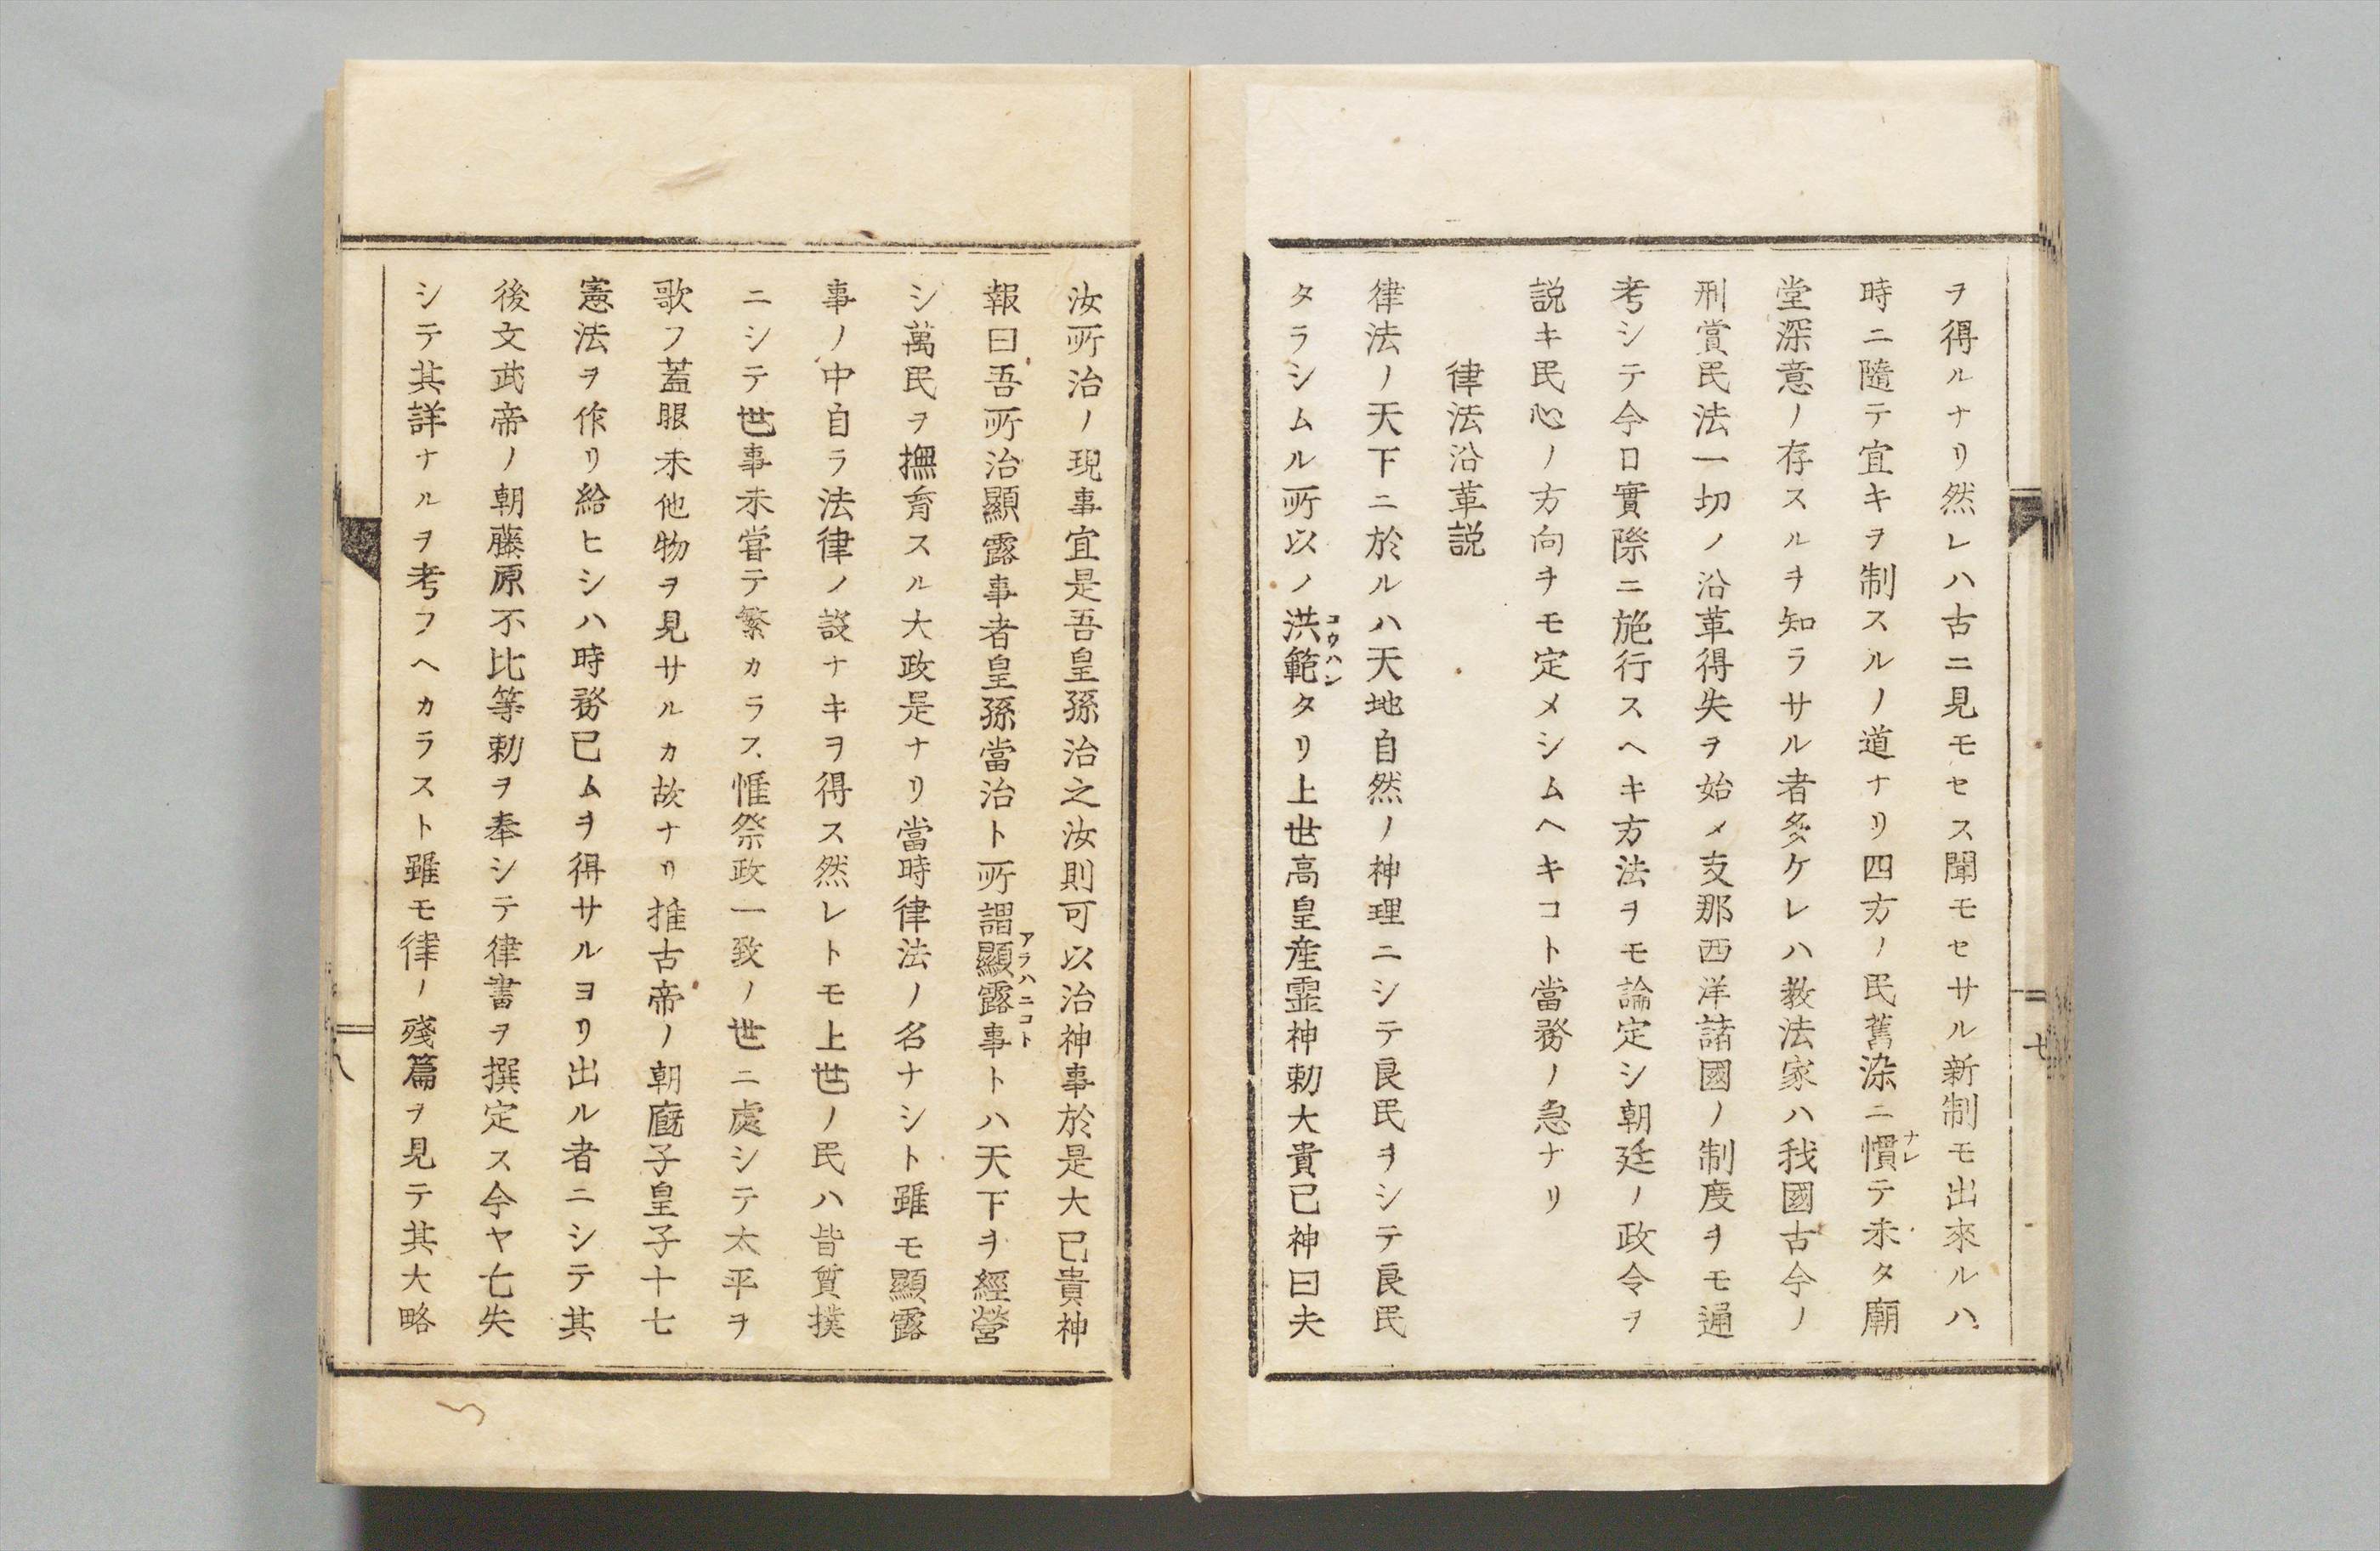 ヲ得ルナリ然レハ古ニ見モセス聞モセサル新制モ出來ルハ
時ニ隨テ宜キヲ制スルノ道ナリ四方ノ民舊染ニ慣テ未タ廟
堂深意ノ存スルヲ知ラサル者多ケレハ教法家ハ我國古今ノ
刑賞民法一切ノ沿革得失ヲ始メ支那西洋諸國ノ制度ヲモ通
考シテ今日實際ニ施行スヘキ方法ヲモ論定シ朝廷ノ政令ヲ
説キ民心ノ方向ヲモ定メシムヘキコト當務ノ急ナリ
律法沿革説
律法ノ天下ニ於ルハ天地自然ノ神理ニシテ良民ヲシテ良民
タラシムル所以ノ洪範タリ上世高皇産霊神勅大貴已神曰夫
七
汝所治ノ現事宜是吾皇孫治之汝則可以治神事於是大已貴神
報曰吾所治顯露事者皇孫當治ト所謂顯露事トハ天下ヲ經營
シ萬民ヲ撫育スル大政是ナリ當時律法ノ名ナシト雖モ顯露
事ノ中自ラ法律ノ談ナキヲ得ス然レトモ上世ノ民ハ皆質撲
ニシテ世事未甞テ繁カラス惟祭政一致ノ世ニ處シテ太平ヲ
歌フ蓋眼未他物ヲ見サルカ故ナリ推古帝ノ朝廐子皇子十七
憲法ヲ作リ給ヒシハ時務已ムヲ得サルヨリ出ル者ニシテ其
後文武帝ノ朝藤原不比等勅ヲ奉シテ律書ヲ撰定ス今ヤ亡失
シテ其詳ナルヲ考フヘカラスト雖モ律ノ殘篇ヲ見テ其大略
八